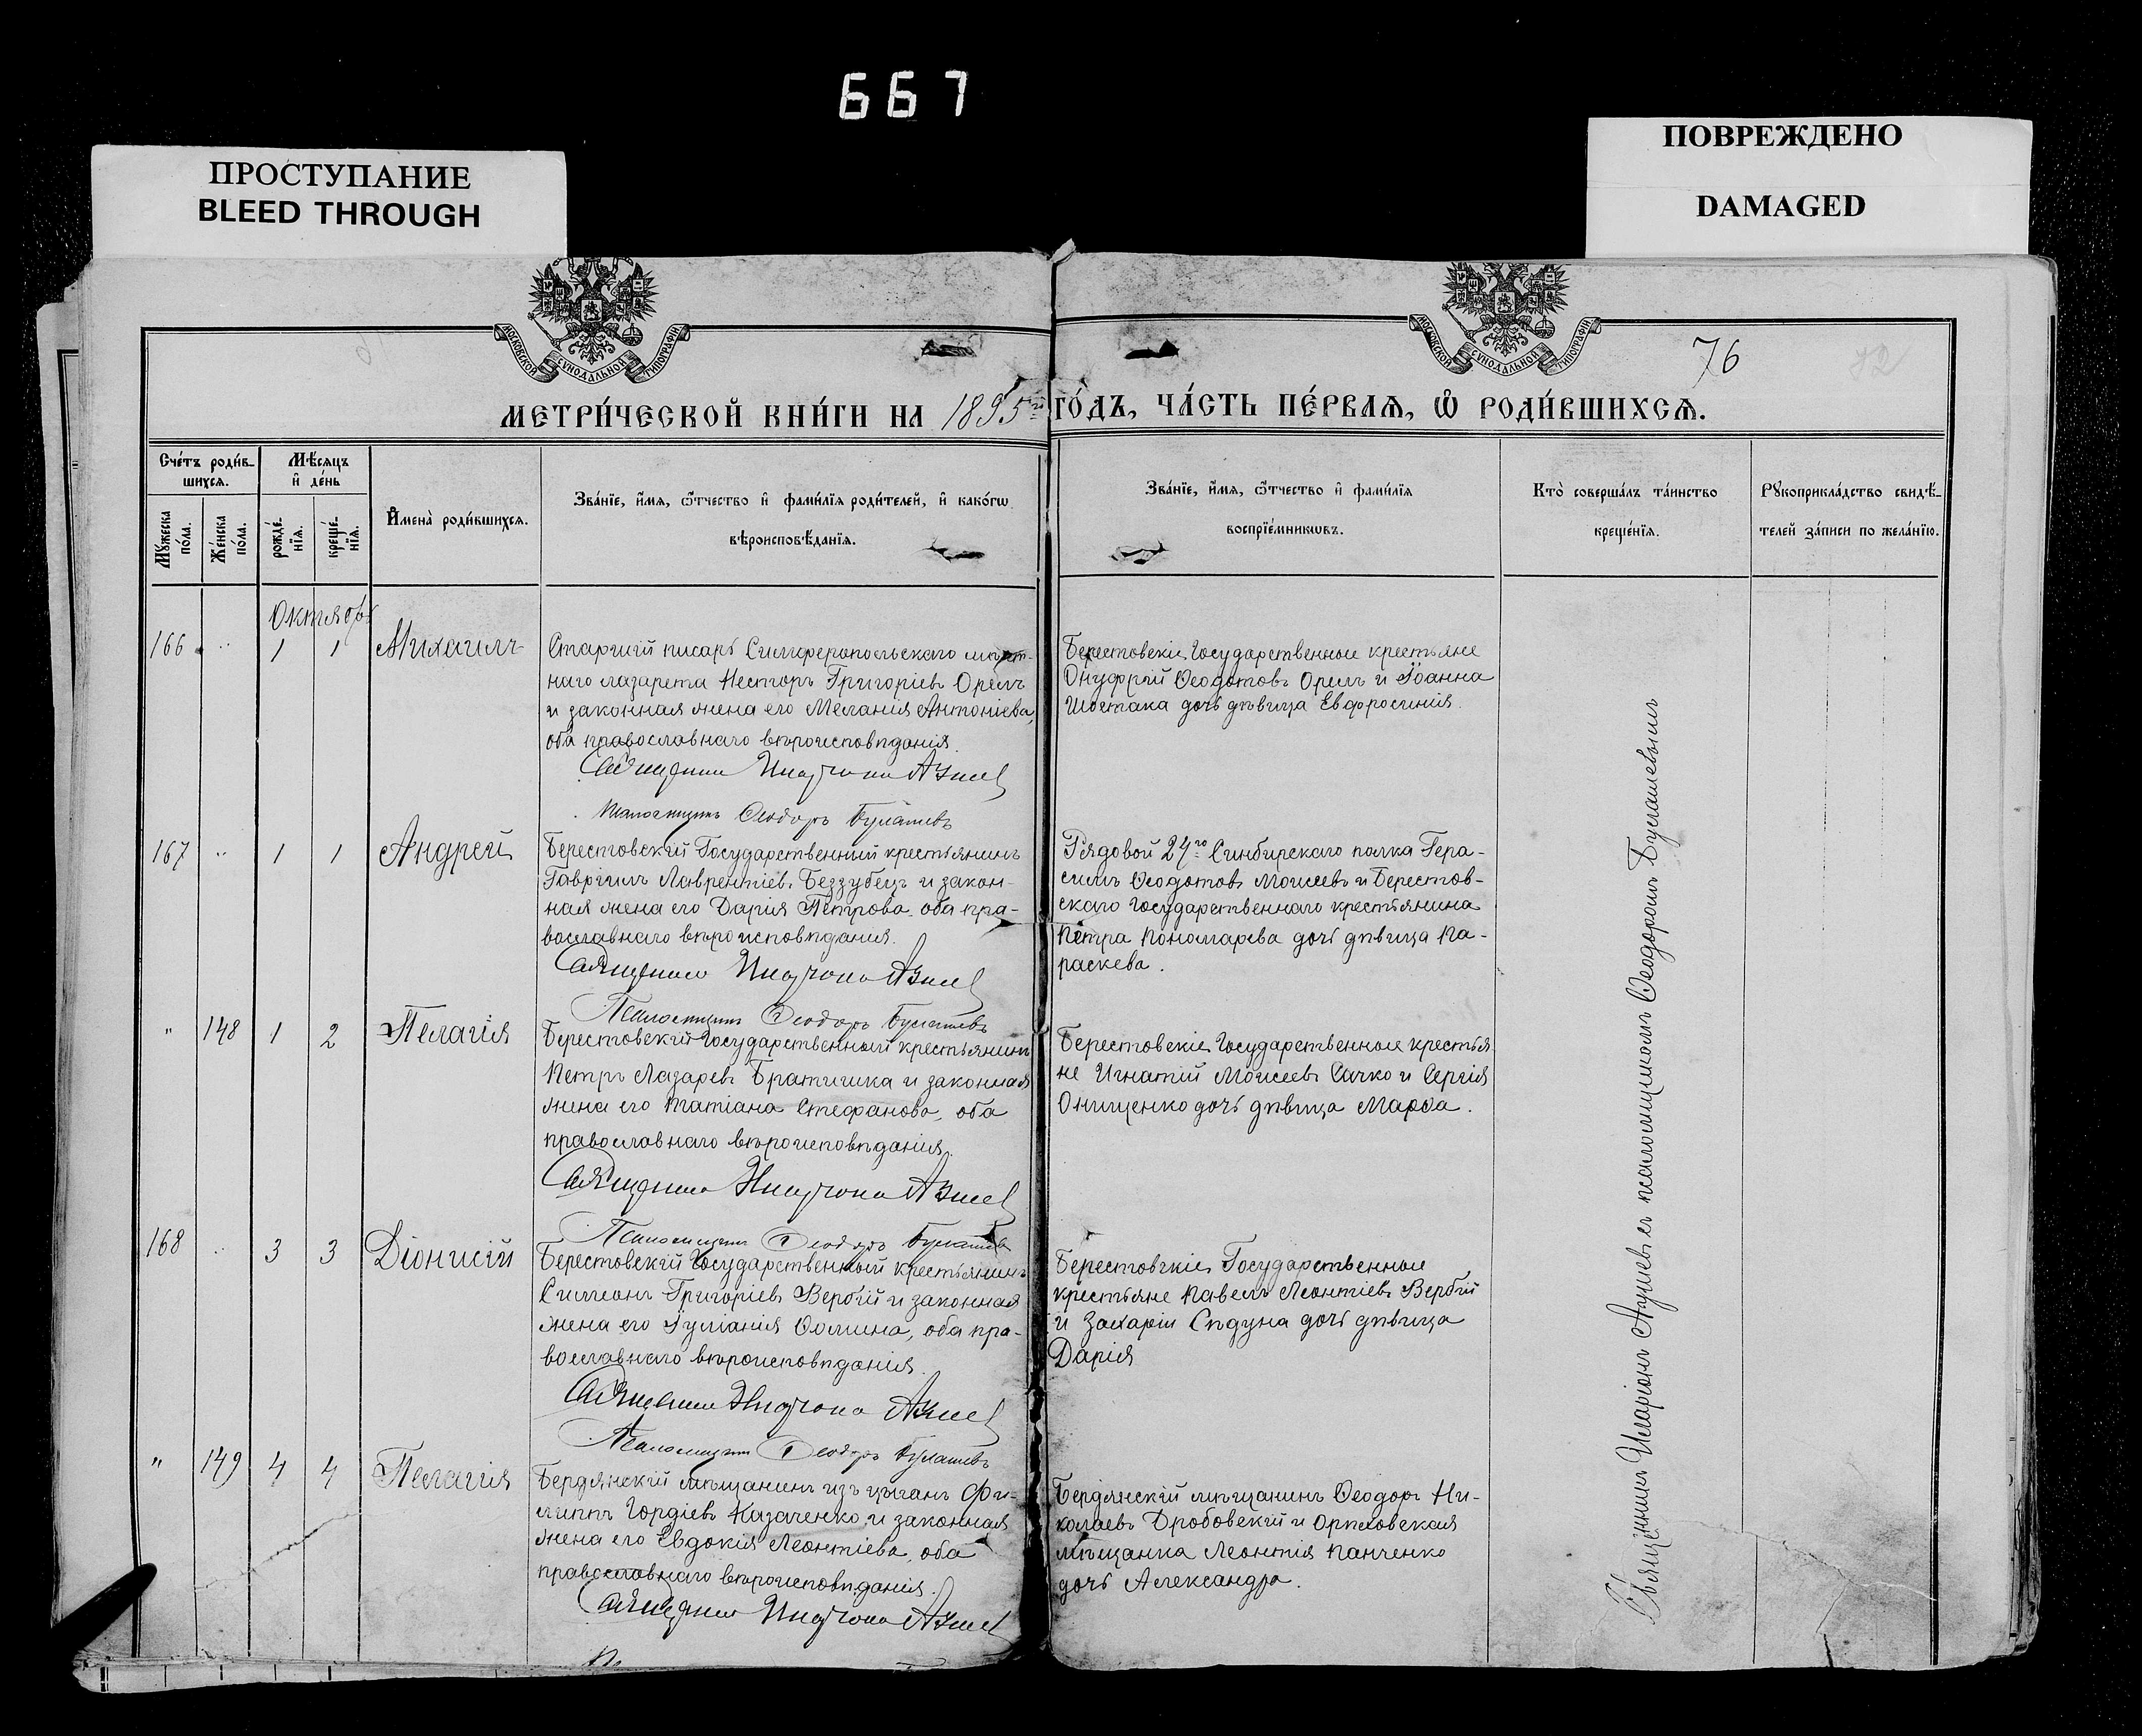 667
ПРОСТУПАНИЕ
BLEED THROUGH
ПОВРЕЖДЕНО
DAMAGED
МОСКОВСКОЙ СѴНОДАЛЬНОЙ ТИПОГРАФІИ
МОСКОВСКОЙ СѴНОДАЛЬНОЙ ТИПОГРАФІИ
76
МЕТРИ́ЧЕСКОЙ КНИ́ГИ НА 1895й ГО́ДЪ, ЧА́СТЬ ПЕ́РВАѦ, Ѡ҆ РОДИ́ВШИХСѦ.
Сче́тъ роди́в-
шихсѧ.
Мѣ́сѧцъ
и҆ де́нь
Мꙋ́жеска по́ла.
Же́нска по́ла.
рожде́нїѧ.
креще́нїѧ.
И҆мена̀ роди́вшихсѧ.
Зва́нїе, и҆́мѧ, ѻ҆́тчество и҆ фами́лїѧ роди́телей, и҆ како́гѡ
вѣроисповѣ́данїѧ.
Зва́нїе, и҆́мѧ, ѻ҆́тчество и҆ фами́лїѧ
воспрїе́мникѡвъ.
Кто̀ соверша́лъ та́инство
креще́нїѧ.
Рꙋкоприкла́дство свидѣ́-
телей за́писи по жела́нїю.
Октябрь
166 " 1 1 Михаилъ
Старшій писарь Симферопольскаго мѣст-
наго лазарета Несторъ Григоріевъ Орелъ
и законная жена его Меланія Антоніева,
оба православнаго вѣроисповѣданія.
Священникъ
Псаломщикъ Ѳеодоръ
Берестовскіе Государственные крестьяне
Онуфрій Ѳеодотовъ Орелъ и Іоанна
Шостака дочь дѣвица Евфросинія.
167 " 1 1 Андрей
Берестовскій Государственный крестьянинъ
Гавріилъ Лаврентіевъ Беззубецъ и закон-
ная жена его Дарія Петрова, оба пра-
вославнаго вѣроисповѣданія.
Священникъ
Псаломщикъ Ѳеодоръ
Рядовой 24го Синбирскаго полка Гера-
симъ Ѳеодотовъ Моисеевъ и Берестов-
скаго Государственнаго крестьянина
Петра Пономарева дочь дѣвица Па-
раскева.
" 148 1 2 Пелагія
Берестовскій Государственный крестьянинъ
Петръ Лазаревъ Братишка и законная
жена его Татіана Стефанова, оба
православнаго вѣроисповѣданія.
Священникъ
Псаломщикъ Ѳеодоръ
Берестовскіе Государственные крестья-
не Игнатій Моисеевъ Сачко и Сергія
Онищенко дочь дѣвица Марѳа.
168 " 3 3 Діонисій
Берестовскій Государственный крестьянинъ
Симеонъ Григоріевъ Вербій и законная
жена его Іуліанія Ѳомина, оба пра-
вославнаго вѣроисповѣданія.
Священникъ
Псаломщикъ Ѳеодоръ
Берестовскіе Государственные
крестьяне Павелъ Леонтіевъ Вербій
и Захаріи Сѣдуна дочь дѣвица
Дарія
" 149 4 4 Пелагія
Бердянскій мѣщанинъ изъ цыганъ Фи-
липпъ Гордіевъ Казаченко и законная
жена его Евдокія Леонтіева, оба
православнаго вѣроисповѣданія.
Священникъ
Бердянскій мѣщанинъ Ѳеодоръ Ни-
колаевъ Дробовскій и Орѣховская
мѣщанка Леонтія Панченко
дочь Александра.
Священникъ Иларіонъ съ псаломщикомъ Ѳеодоромъ